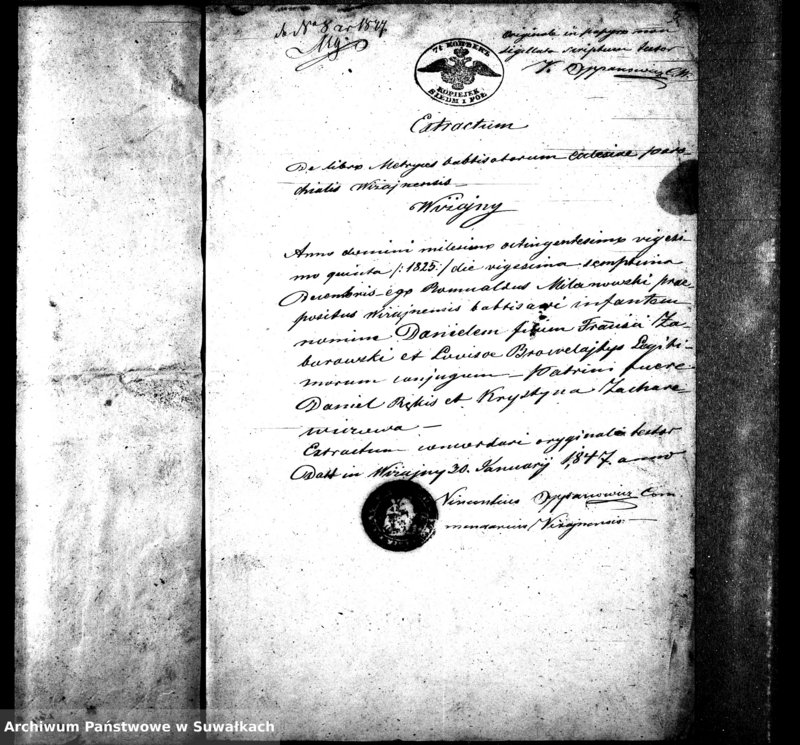 do No 8 ar 1847
Originale in papyro non
sigillata scriptum testor
V.
7½ КОПѢЕКЪ
KOPIEJEK
SIEDM I PÓŁ
Extractum
De libro Metryces babtisatorum eclesiae paro
chialis Wiżajnensis
Wiżajny
Anno domini milesimo octingentesimo vigesi-
mo quinto /:1825:/ die vigesima septima
Decembris ego Romualdus Milanowski prae
positus Wiżajnensis babtisavi infantem
nomine Danielem filium Francisci Za-
borowski et Lovisae Browelajtys Legiti-
morum conjugum – Patrini fuere
Daniel Rękis et Krystyna Zachare-
wiczowa –
Extractum concordari oryginali testor
Datt in Wiżajny 30. January 1847 anno
Vincentius Com
mendarius Wiżajnensis
Archiwum Państwowe w Suwałkach